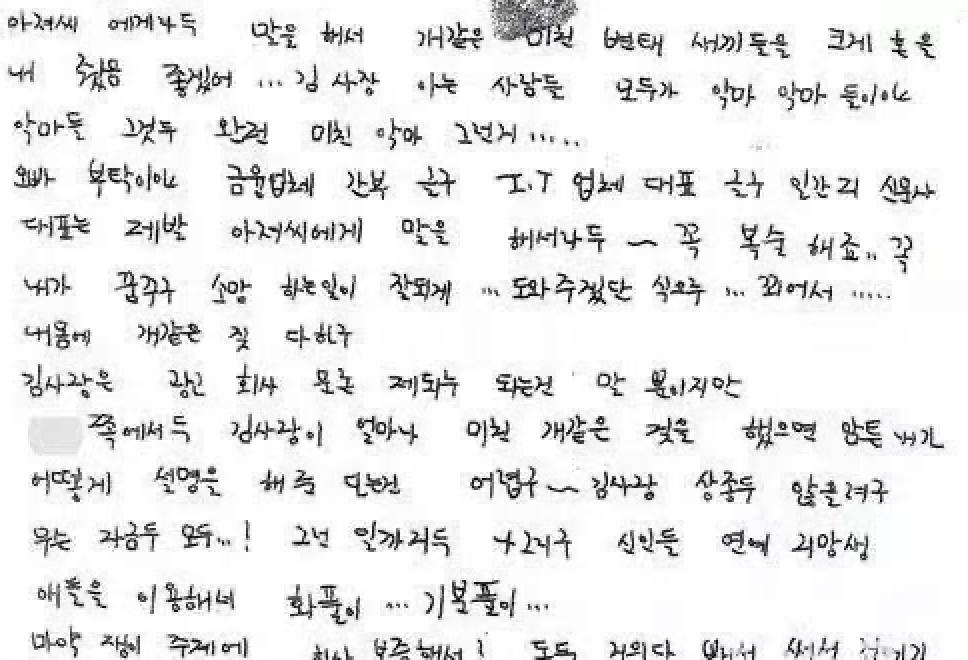 아저씨 에게나두 말을 해서 개같은 미친 변태 새끼들을 크게 혼을
내 줬음 좋겠어 ... 김 사장 아는 사람들 모두가 악마 악마 들이야
악마들 그것두 완전 미친 악마 그런거 .....
오빠 부탁이야 금융업체 간부 글구 I.T 업체 대표 글구 일간지 신문사
대표는 제발 아저씨에게 말을 해서나두 ~ 꼭 복수 해죠.. 꼭
내가 꿈꾸구 소망 하는일이 잘되게 ... 도와주겠단 식으루 ... 꾀어서 .....
내몸에 개같은 짓 다하구
김사장은 광고 회사 문론 제되누 되는건 말 뿐이지만
쪽에서두 김사장이 얼마나 미친 개같은 짓을 했으면 암튼 내가
어떻게 설명을 해 준 단는건 어렵구 ~ 김사장 상종두 않을려구
우는 자금두 모두..! 그런 일까지두 그리구 신인들 연예 지망생
애들을 이용해서 화풀이 ... 기분풀이 ...
마약 쟁이 주제에 회사 보증해서! 돈두 거의다